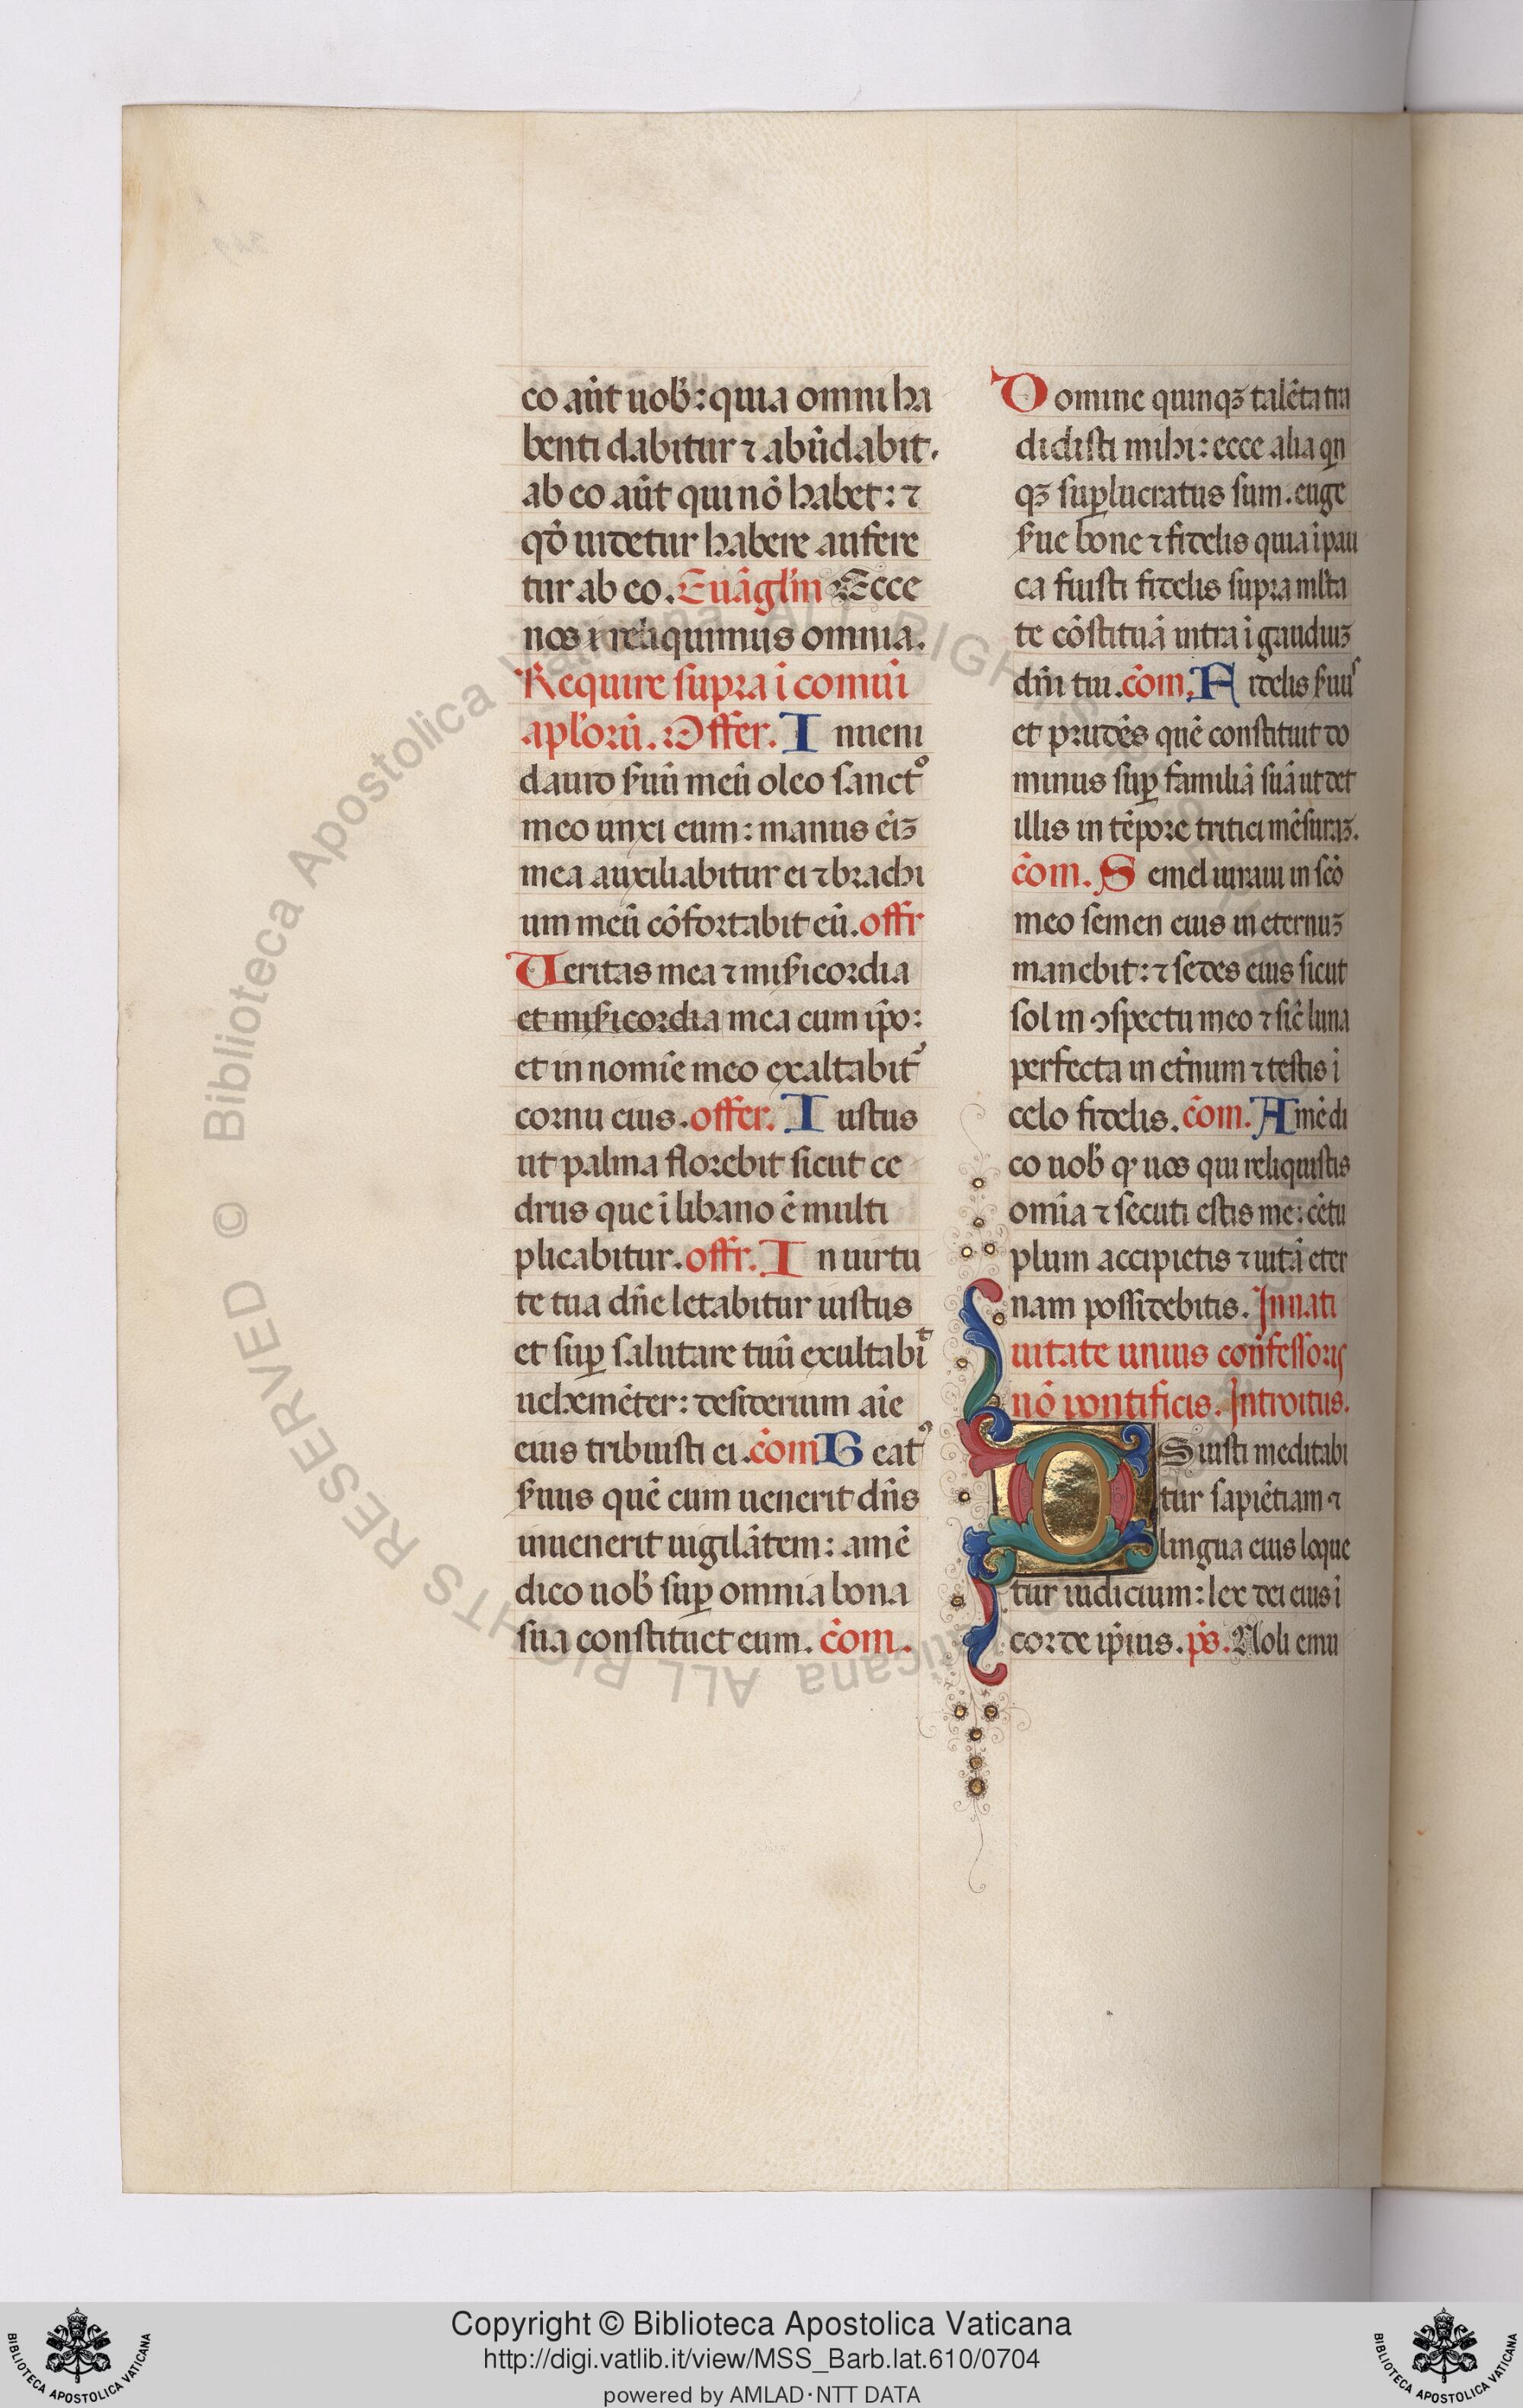 co aūt uob̄: quia omni ha
benti dabitur ⁊ abūdabit.
ab eo aūt qui nō habet: ⁊
qđ uidetur habere aufere
tur ab eo. Euāgl'm Ecce
nos reliquimus omnia.
Require supra ī comuī
apl'orū. Offer. I nueni
dauid s̄uū meū oleo sanctꝰ
meo unxi eum: manus eīꝫ
mea auxiliabitur ei ⁊ brachi
um meū cōfortabit eū. offr̄
Ueritas mea ⁊ mis̄icordia
et mis̄icordia mea cum ip̄o:
et in nomīe meo exaltabit᷑
cornu eius. offer. I ustus
ut palma florebit sicut ce
drus que ī libano ē multi
plicabitur. offr̄. I n uirtu
te tua dn̄e letabitur iustus
et suꝑ salutare tuū exultabiᵗ
uehemēter: desiderium aīe
eius tribuisti ei. cōm B eatꝰ
s̄uus quē cum uenerit dn̄s
inuenerit uigilātem: amē
dico uob̄ suꝑ omnia bona
sua constituet eum. cōm.
D omine quinqꝫ talēta tra
didisti mihi: ecce alia qn̄
qꝫ suꝑlucratus sum. euge
s̄ue bone ⁊ fidelis quia ī pau
ca fuisti fidelis supra ml̄ta
te cōstituā intra ī gaudiuꝫ
dn̄i tui. cōm. F idelis s̄uus
et prudēs quē constituit do
minus suꝑ familiā suā ut det
illis in tēpore tritici mēsuraꝫ.
cōm. S emel iuraui in scō
meo semen eius in eternuꝫ
manebit: ⁊ sedes eius sicut
sol in ꝯspectu meo ⁊ sic̄ luna
perfecta in et̄num ⁊ testis ī
celo fidelis. cōm. A mē di
co uob̄ ꝙ uos qui reliquistis
omīa ⁊ secuti estis me: cētu
plum accipietis ⁊ uitā eter
nam possidebitis. In nati
uitate unius confessoris
nō pontificis. Introitus.
O S iusti meditabi
tur sapiētiam ⁊
lingua eius loque
tur iudicium: lex dei eius ī
corde ip̄ius. p̄s. Noli emu
© Biblioteca Apostolica Vaticana ALL RIGHTS RESERVED
Copyright © Biblioteca Apostolica Vaticana
http://digi.vatlib.it/view/MSS_Barb.lat.610/0704
powered by AMLAD·NTT DATA
BIBLIOTECA APOSTOLICA VATICANA
BIBLIOTECA APOSTOLICA VATICANA